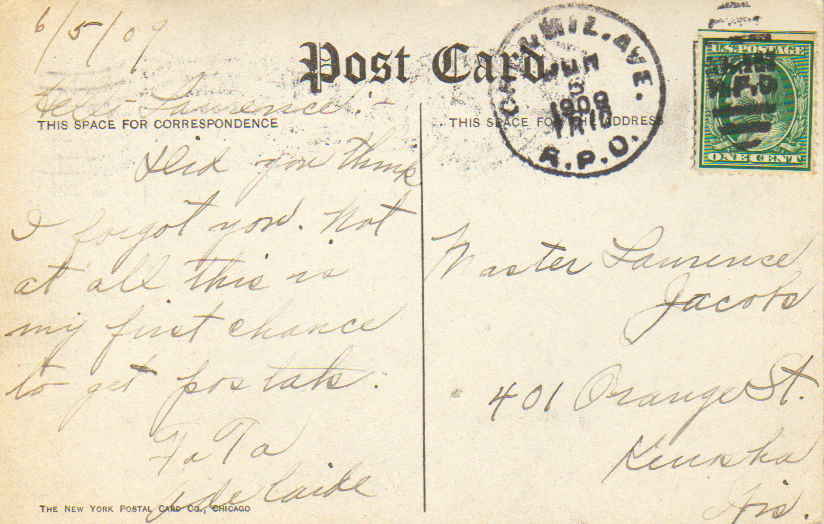 6/5/09
Post Card.
Hello Lawrence:-
THIS SPACE FOR CORRESPONDENCE
Did you think
I forgot you. Not
at all this is
my first chance
to get postals.
Ta Ta
Adelaide
THE NEW YORK POSTAL CARD CO., CHICAGO
THIS SPACE FOR THE ADDRESS
MIL. AVE.
JUN
6
1909
TR 10
R.P.O.
U.S. POSTAGE
R.P.O
ONE CENT
Master Lawrence
Jacobs
401 Orange St.
Kenosha
Wis.